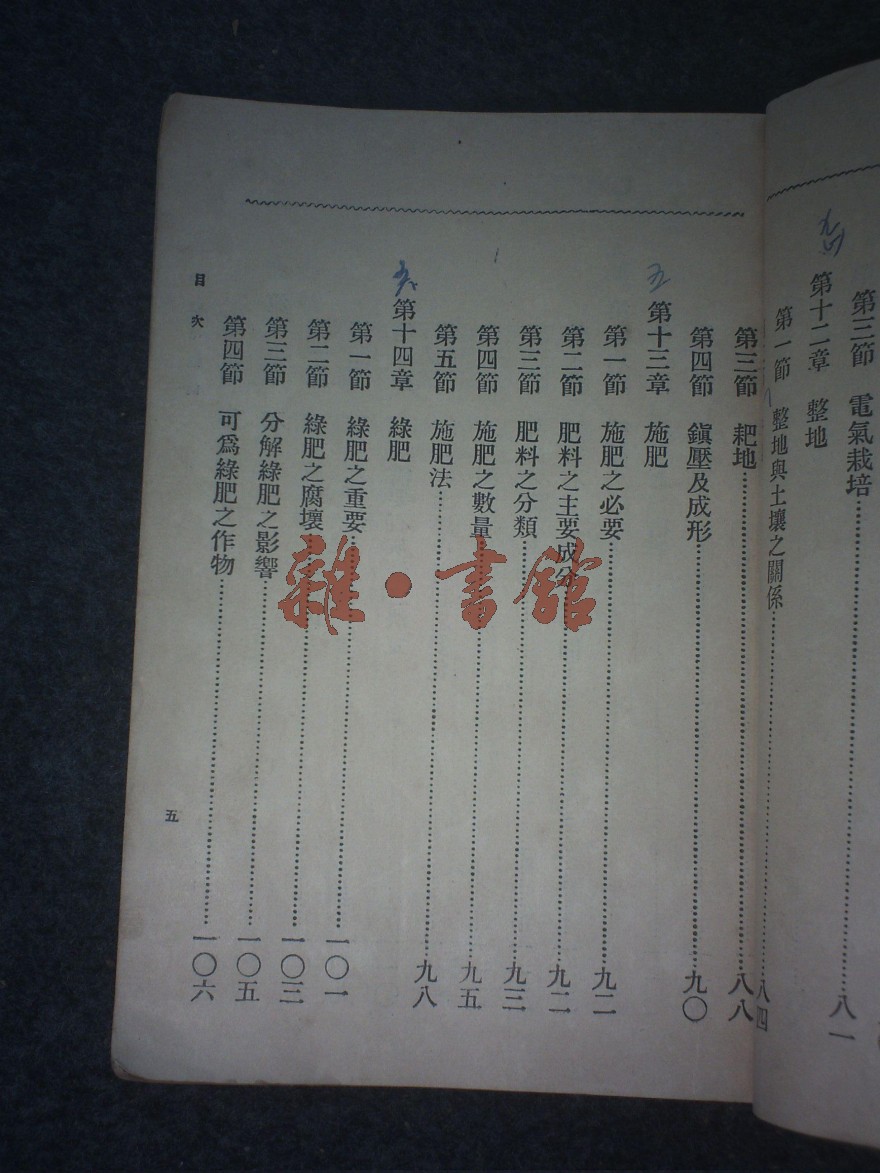 第三節　電氣栽培……八一
第十二章　整地
第一節　整地與土壤之關係……八四
第三節　耙地……八八
第四節　鎭壓及成形……九〇
第十三章　施肥
第一節　施肥之必要……九二
第二節　肥料之主要成分……九二
第三節　肥料之分類……九三
第四節　施肥之數量……九五
第五節　施肥法……九八
第十四章　綠肥
第一節　綠肥之重要……一〇一
第二節　綠肥之腐壞……一〇三
第三節　分解綠肥之影響……一〇五
第四節　可爲綠肥之作物……一〇六
目次
五
雜·書館